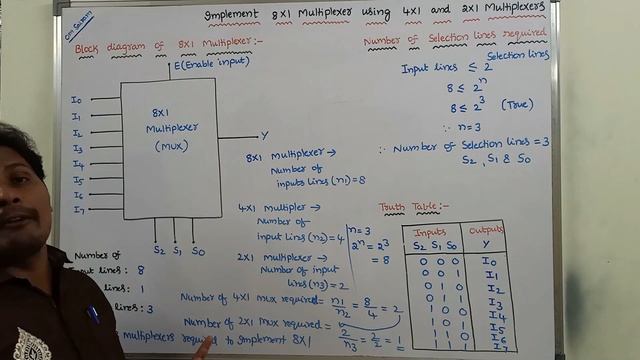 Implement 8X1 Multiplexer using 4X1 and 2X1 Multiplexers
Block diagram of 8X1 Multiplexer:-
E(Enable input)
I0
I1
I2
I3
I4
I5
I6
I7
8X1
Multiplexer
(MUX)
Y
S2 S1 S0
Number of
lines: 8
lines: 1
lines: 3
Number of Selection lines required
Selection lines
Input lines ≤ 2
8 ≤ 2^n
8 ≤ 2^3 (True)
∴ n=3
∴ Number of Selection lines = 3
S2, S1 & S0
8X1 Multiplexer →
Number of
inputs lines (n1)=8
4X1 Multipler →
Number of
input lines (n2)=4
n=3
2^n = 2^3
= 8
2X1 Multiplexer →
Number of input
lines (n3)=2
Number of 4X1 mux required = n1/n2 = 8/4 = 2
Number of 2X1 mux required =
2/n3 = 2/2 = 1
multiplexers required to implement 8X1
Truth Table:-
Inputs Outputs
S2 S1 S0 Y
0 0 0 I0
0 0 1 I1
0 1 0 I2
0 1 1 I3
1 0 0 I4
1 0 1 I5
1 1 0 I6
1 1 1 I7